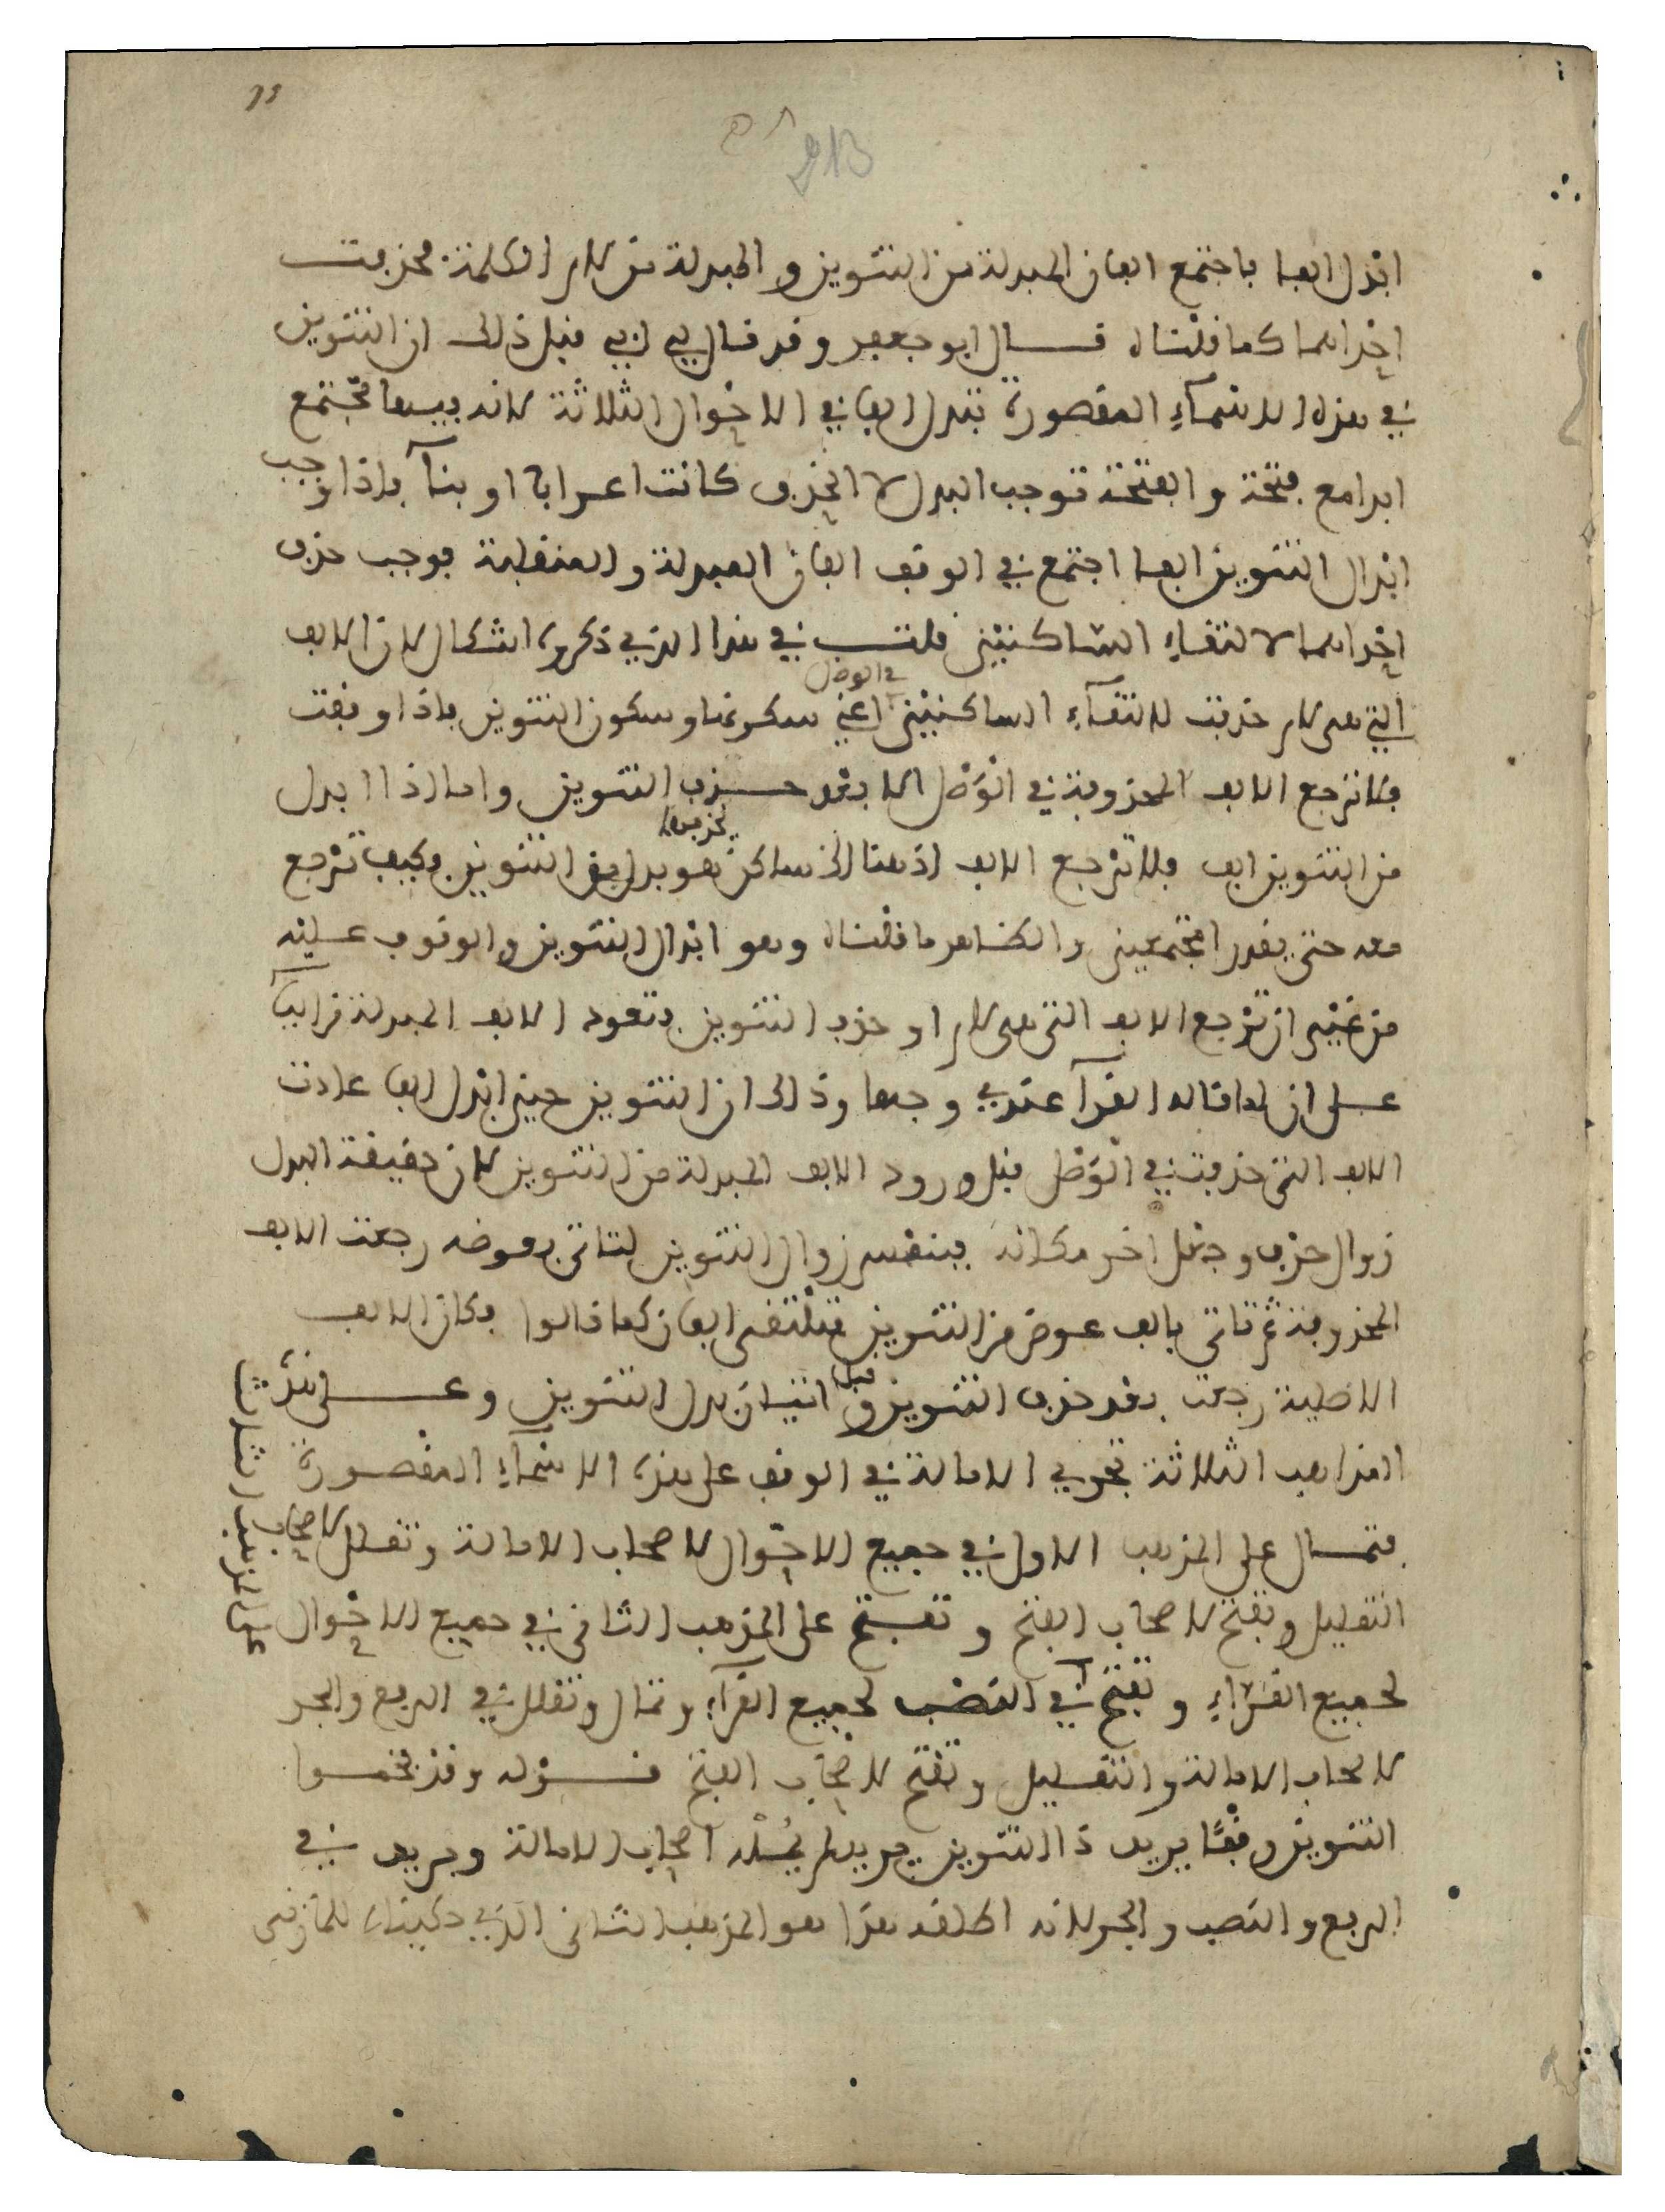 ابدل الفا فاجتمع الفان المبدلة من التنوين والمبدلة من لام الكلمة فحذفت
احداهما كما قلناه قال ابو جعفر وقد قال لي ابي قبل ذلك ان التنوين
في هذه الاسماء المقصورة تبدل الفا في الاحوال الثلاثة لانه فيها تجتمع
ابدا مع فتحة والفتحة توجب البدل لا الحذف كانت اعرابا او بناء فاذا وجب
ابدال التنوين الفا اجتمع في الوقف الفان المبدلة والمنقلبة فوجب حذف
احداهما لالتقاء الساكنين قلت في هذا الذي ذكره اشكال لان الالف
التي هي لام حذفت لالتقاء الساكنين في الوصل اعني سكونها وسكون التنوين فاذا وقفت
فلا ترجع الالف المحذوفة في الوصل الا بعد حذف التنوين واما اذا ابدل
من التنوين الف فلا ترجع الالف اذ هنا ساكن يحذفها هو بدل من التنوين فكيف ترجع
معه حتى يقدرا مجتمعين والظاهر ما قلناه وهو ابدال التنوين والوقوف عليه
من غير ان ترجع الالف التي هي لام او حذف التنوين فتعود الالف المبدلة من الياء
على ان لما قاله القراء عندي وجها وذلك ان التنوين حين ابدل الفا عادت
الالف التي حذفت في الوصل قبل ورود الالف المبدلة من التنوين لان حقيقة البدل
زوال حرف وجعل اخر مكانه فبنفس زوال التنوين لتاتي بعوضه رجعت الالف
المحذوفة ثم تاتي بالف عوض من التنوين فتلتقي الفان كما قالوا فكان الالف
الاصلية رجعت بعد حذف التنوين وقبل اتيان بدل التنوين وعلى هذه
المذاهب الثلاثة تجري الامالة في الوقف على هذه الاسماء المقصورة
فتمال على المذهب الاول في جميع الاحوال لاصحاب الامالة وتقلل لاصحاب
التقليل وتفتح لاصحاب الفتح وتفتح على المذهب الثاني في جميع الاحوال
لجميع القراء وتفتح في النصب لجميع القراء وتمال وتقلل في الرفع والجر
لاصحاب الامالة والتقليل وتفتح لاصحاب الفتح قوله وقد فخموا
التنوين وقفا يريد ذا التنوين يريد لم يمله اصحاب الامالة ويريد في
الرفع والنصب والجر لانه اطلقه هذا هو المذهب الثاني الذي حكيناه للمازني
على المذهب الثالث